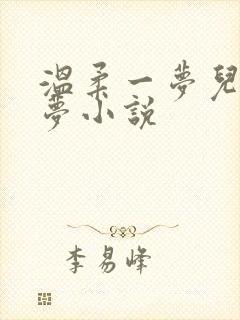 溫柔一夢兒
夢小說
李易峰